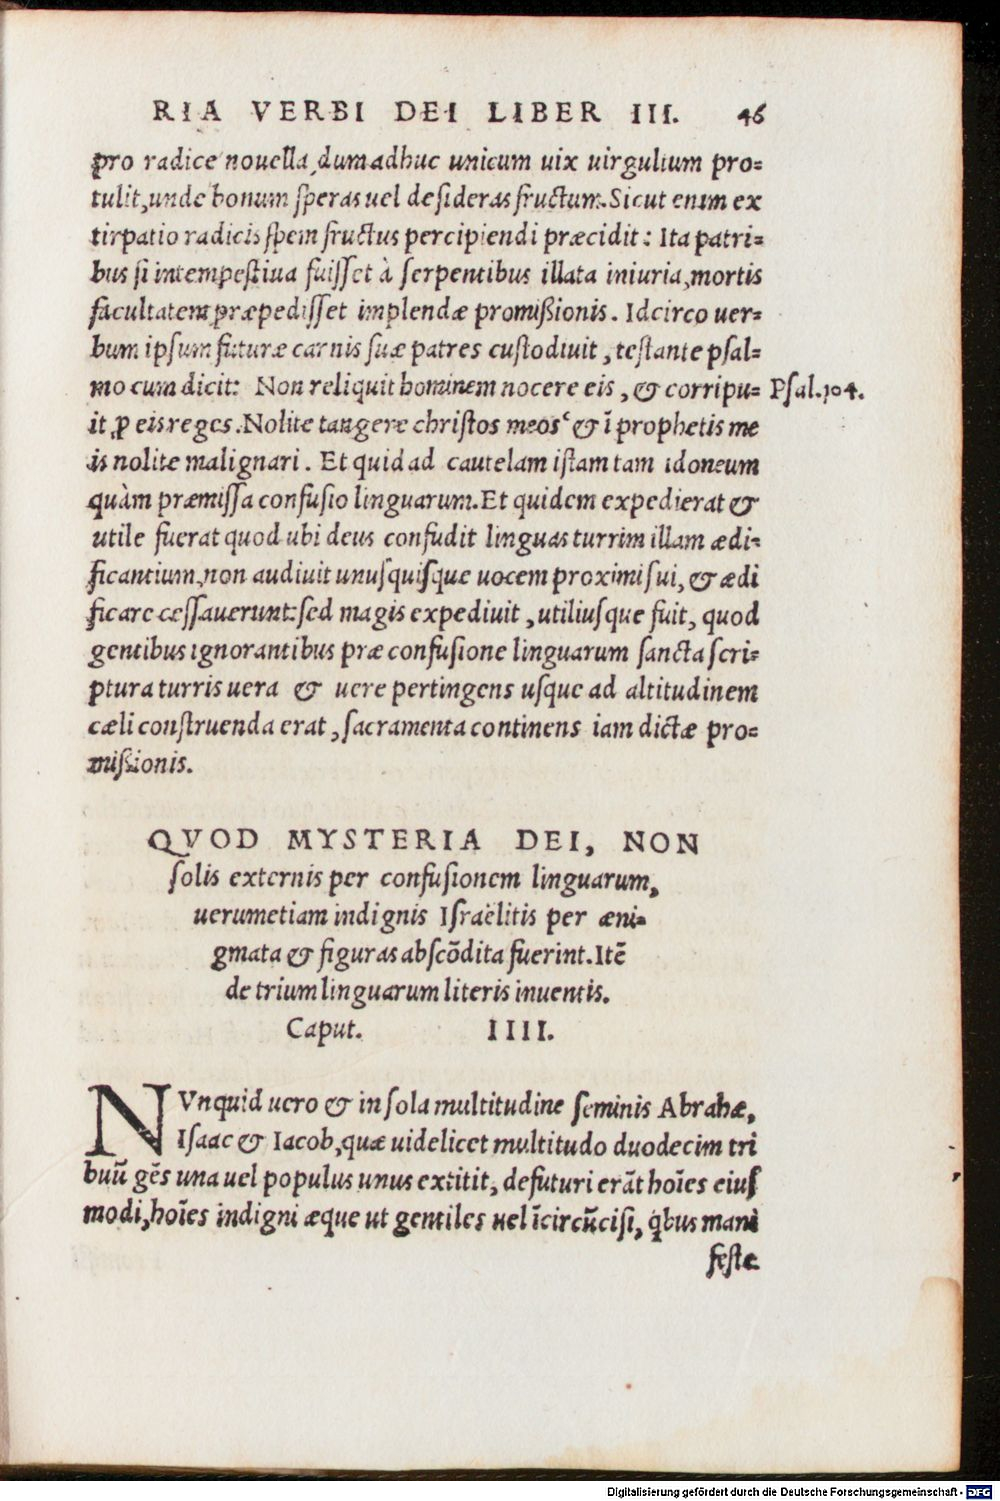 RIA VERBI DEI LIBER III. 46
pro radice nouella, dum adhuc unicum uix uirgultum pro=
tulit, unde bonum speras uel desideras fructum. Sicut enim ex
tirpatio radicis spem fructus percipiendi præcidit: Ita patri=
bus si intempestiua fuisset à serpentibus illata iniuria, mortis
facultatem præpedisset implendæ promißionis. Idcirco uer=
bum ipsum futuræ carnis suæ patres custodiuit, testante psal=
mo cum dicit: Non reliquit hominem nocere eis, & corripu= Psal. 104.
it ꝓ eis reges. Nolite tangere christos meos & ī prophetis me
is nolite malignari. Et quid ad cautelam istam tam idoneum
quàm præmissa confusio linguarum. Et quidem expedierat &
utile fuerat quod ubi deus confudit linguas turrim illam ædi=
ficantium, non audiuit unusquisque uocem proximi sui, & ædi
ficare cessauerunt: sed magis expediuit, utiliusque fuit, quod
gentibus ignorantibus præ confusione linguarum sancta scri=
ptura turris uera & uere pertingens usque ad altitudinem
cæli construenda erat, sacramenta continens iam dictæ pro=
mißionis.
QVOD MYSTERIA DEI, NON
solis externis per confusionem linguarum,
uerumetiam indignis Israëlitis per æni=
gmata & figuras abscōdita fuerint. Itē
de trium linguarum literis inuentis.
Caput. IIII.
NVnquid uero & in sola multitudine seminis Abrahæ,
Isaac & Iacob, quæ uidelicet multitudo duodecim tri
buū gēs una uel populus unus extitit, defuturi erāt hoīes eius
modi, hoīes indigni æque ut gentiles uel īcircūcisi, q̄bus mani
feste
Digitalisierung gefördert durch die Deutsche Forschungsgemeinschaft - DFG